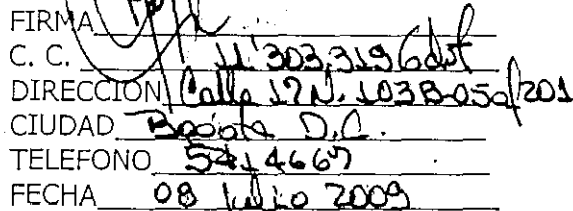 FIRMA
C. C. 11'303.319 Gdot
DIRECCION Calle 17 N. 103B-05 af 201
CIUDAD Bogota D.C.
TELEFONO 5414667
FECHA 08 Julio 2009